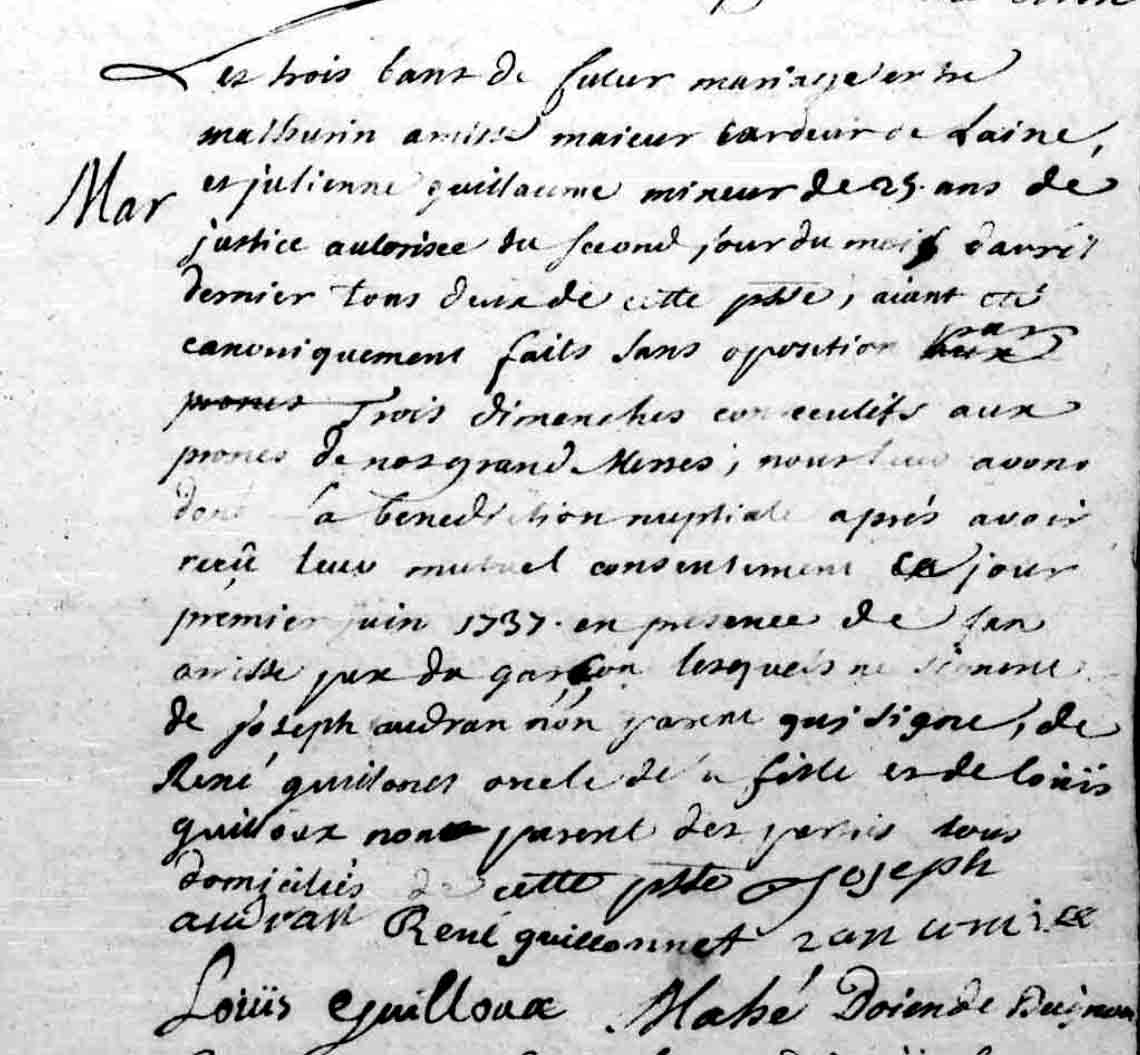 Les trois bans de futur mariage entre
mathurin amisse majeur cardeur de Laine,
et julienne guillaume mineur de 25. ans de
justice autorisée du second jour du mois d'avril
dernier tous deux de cette psse, aiant eté
canoniquement faits sans oposition par
prones Trois dimenches consecutifs aux
prones de nos grand Messes, nous leur avons
donné La benediction nuptiale aprés avoir
reçû leur mutuel consentement ce jour
premier juin 1737. en presence de jan
amisse pere du garcon lesquels ne signent
de joseph audran non parent qui signe, de
René guillonet oncle de la fille et de loüis
guilloux non parent des partis tous
domiciliés de cette psse Joseph
audran René guillonnet
Loüis Guilloux Mahé Doien de
Mar